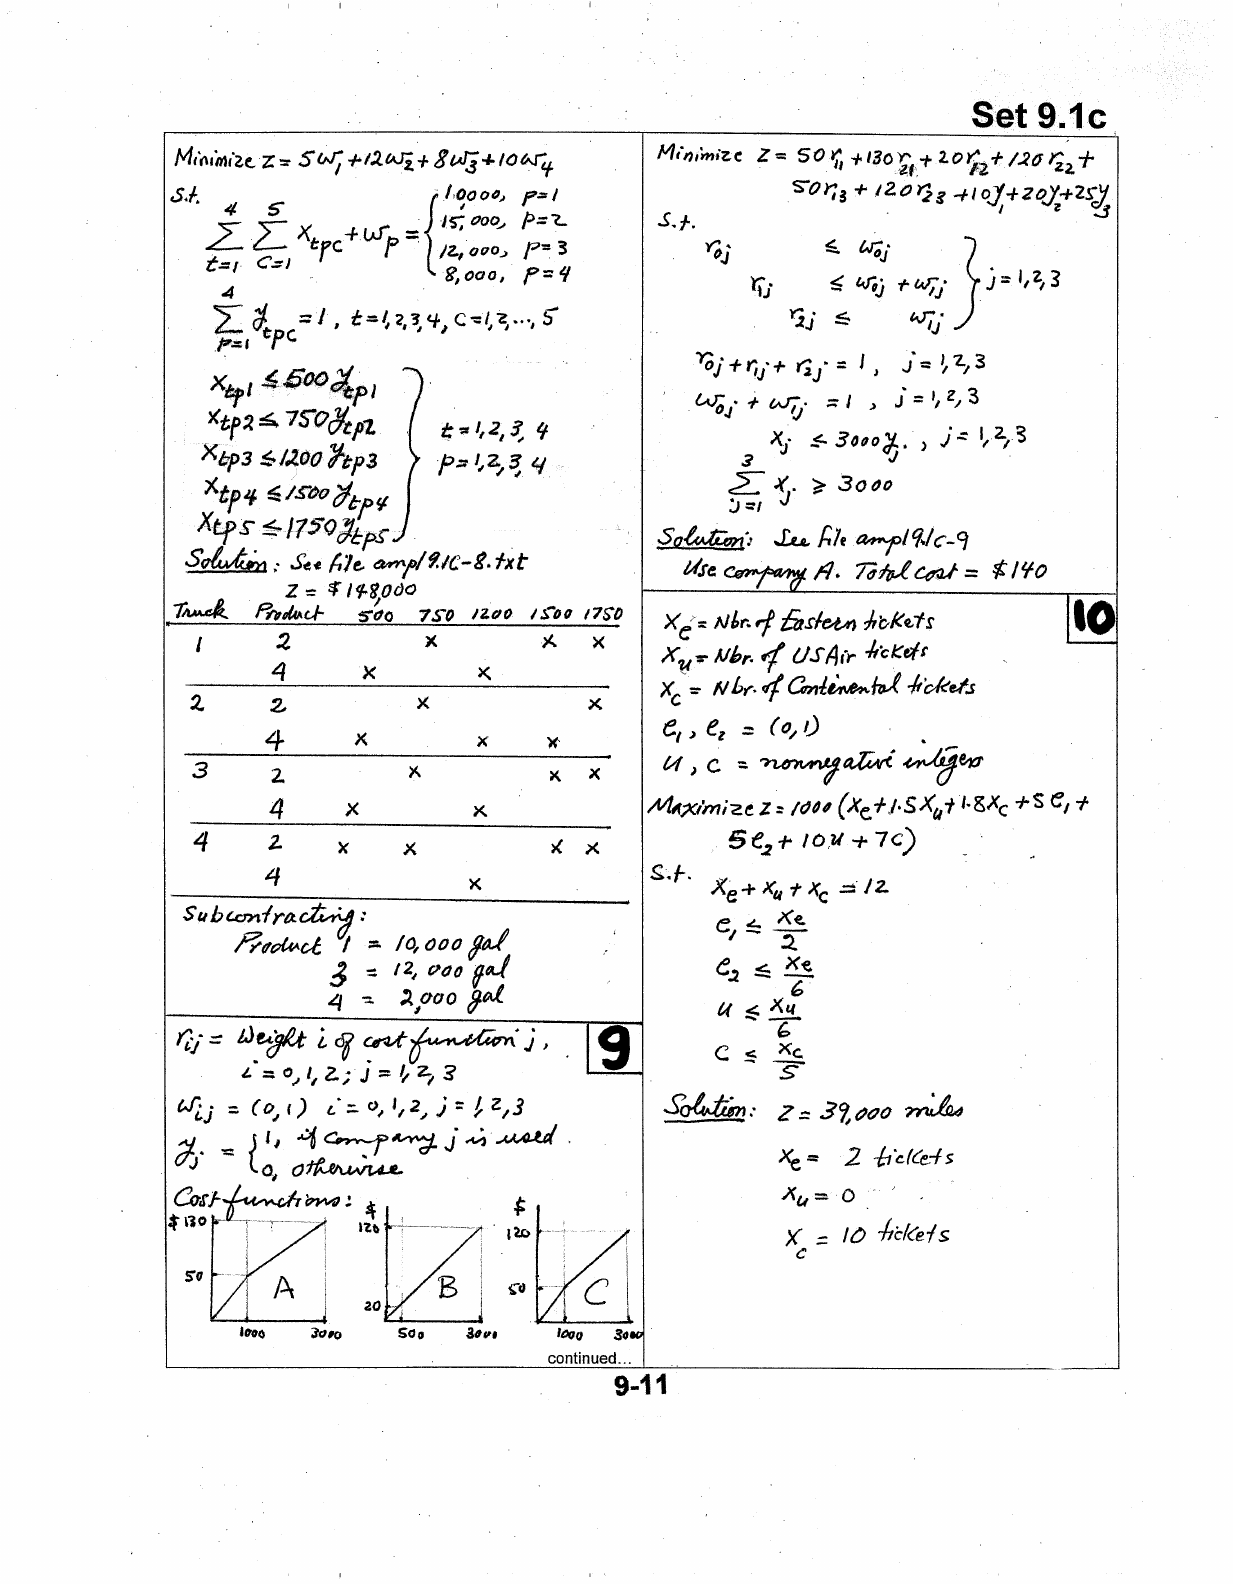 Set 9.1c
Minimize z = 5w₁ + 12w₂ + 8w₃ + 10w₄
s.t.
4 5
Σ Σ x_tpc + w_p = { 10,000, p=1
t=1 c=1 15,000, p=2
12,000, p=3
8,000, p=4
4
Σ y_tpc = 1, t=1,2,3,4, c=1,2,...,5
p=1
x_tp1 ≤ 500 y_tp1
x_tp2 ≤ 750 y_tp2
x_tp3 ≤ 1200 y_tp3
x_tp4 ≤ 1500 y_tp4
x_tp5 ≤ 1750 y_tp5
} t=1,2,3,4
p=1,2,3,4
Solution: See file ampl9.1c-8.txt
z = $148,000
Truck Product 500 750 1200 1500 1750
1 2 x x x
4 x x
2 2 x x
4 x x x
3 2 x x x
4 x x
4 2 x x x x
4 x
Subcontracting:
Product 1 = 10,000 gal
3 = 12,000 gal
4 = 2,000 gal
9
r_ij = Weight i of cost function j,
i = 0,1,2; j = 1,2,3
w_ij = (0,1) i = 0,1,2, j = 1,2,3
y_j = { 1, if company j is used.
0, otherwise
Cost functions:
$130 50 A 1000 3000
$ 120 20 B 500 3000
$ 120 50 C 1000 3000
continued...
Minimize z = 50r₁₁ + 130r₂₁ + 20r₁₂ + 120r₂₂ +
50r₁₃ + 120r₂₃ + 10y₁ + 20y₂ + 25y₃
s.t.
r₀j ≤ w₀j
r₁j ≤ w₀j + w₁j
r₂j ≤ w₁j
} j = 1,2,3
r₀j + r₁j + r₂j = 1, j = 1,2,3
w₀j + w₁j = 1, j = 1,2,3
x_j ≤ 3000y_j, j = 1,2,3
3
Σ x_j ≥ 3000
j=1
Solution: See file ampl9.1c-9
Use company A. Total cost = $140
10
x_e = Nbr. of Eastern tickets
x_u = Nbr. of USAir tickets
x_c = Nbr. of Continental tickets
e₁, e₂ = (0,1)
u, c = nonnegative integers
Maximize z = 1000(x_e + 1.5x_u + 1.8x_c + 5e₁ +
5e₂ + 10u + 7c)
s.t.
x_e + x_u + x_c = 12
e₁ ≤ x_e/2
e₂ ≤ x_e/6
u ≤ x_u/6
c ≤ x_c/5
Solution: z = 39,000 miles
x_e = 2 tickets
x_u = 0
x_c = 10 tickets
9-11